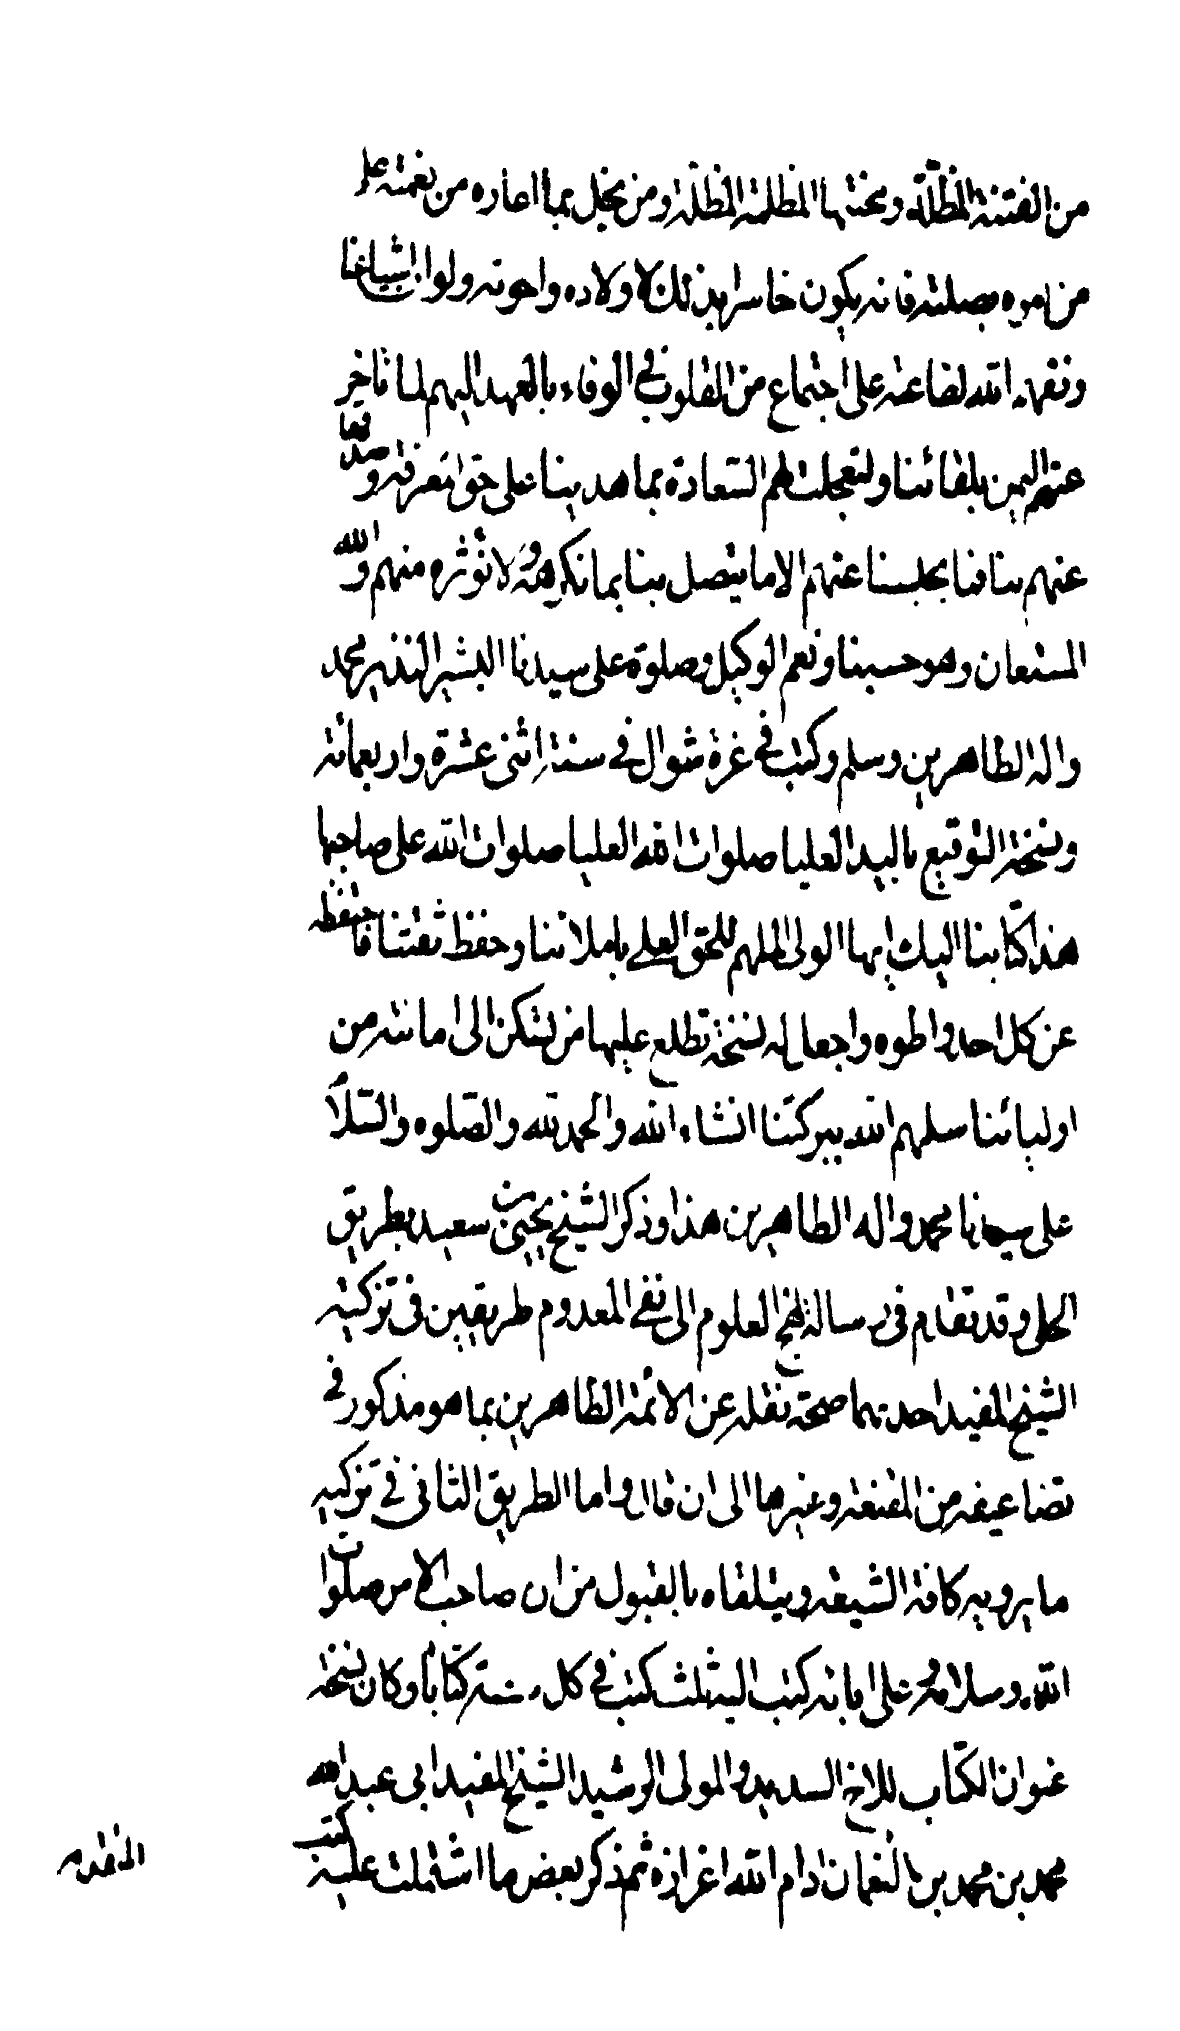 من الفتنة المظلّة ومحنتها المظلمة المظلّة ومن بخل بما اعاره من نعمته على
من امره بصلته فانه يكون خاسرا بذلك لاولاده واخوته ولو ان اشياعنا
وفقهم الله لطاعته على اجتماع من القلوب في الوفاء بالعهد اليهم لما تأخر
عنهم اليمن بلقائنا ولتعجلت لهم السّعادة بمشاهدتنا على حق المعرفة وصدقها
عنهم بنا فما يحبسنا عنهم الا ما يتصل بنا بما نكرهه ولا نؤثره منهم والله
المستعان وهو حسبنا ونعم الوكيل وصلوته على سيدنا البشير النذير محمد
واله الطاهرين وسلم وكتب في غرة شوال في سنة اثنى عشرة واربعمائة
ونسخة التوقيع باليد العليا صلوات الله العليا صلوات الله على صاحبها
هذا كتابنا اليك ايها الولى الملهم للحق العلى باملائنا وخط ثقتنا فاخفظه
عن كل احد واطوه واجعل له نسخة تطلع عليها من تسكن الى امانته من
اوليائنا سلمهم الله ببركتنا انشاء الله والحمد لله والصّلوه والسّلام
على سيدنا محمد واله الطاهرين هذا وذكر الشيخ يحيى بن سعيد بطريق
الحلى وقد تقدم في رسالة نهج العلوم الى نفى المعدوم طريقين في تزكية
الشيخ المفيد احدتهما صحة نقله عن الائمة الطاهرين بما هو مذكور في
تصانيفه من المقنعة وغيرها الى ان قال واما الطريق الثانى في تزكيته
ما يرويه كافة الشيعة ويتلقاه بالقبول من ان صاحب الامر صلوات
الله وسلامه عليه وعلى ابائه كتب اليه ثلث كتب في كل سنة كتابا وكان نسخة
عنوان الكتاب للاخ السديد والمولى الرشيد الشيخ المفيد ابى عبدالله
محمد بن محمد بن النعمان ادام الله اعزازه ثم ذكر بعض ما اشتملت عليه كتب
المتقدمه